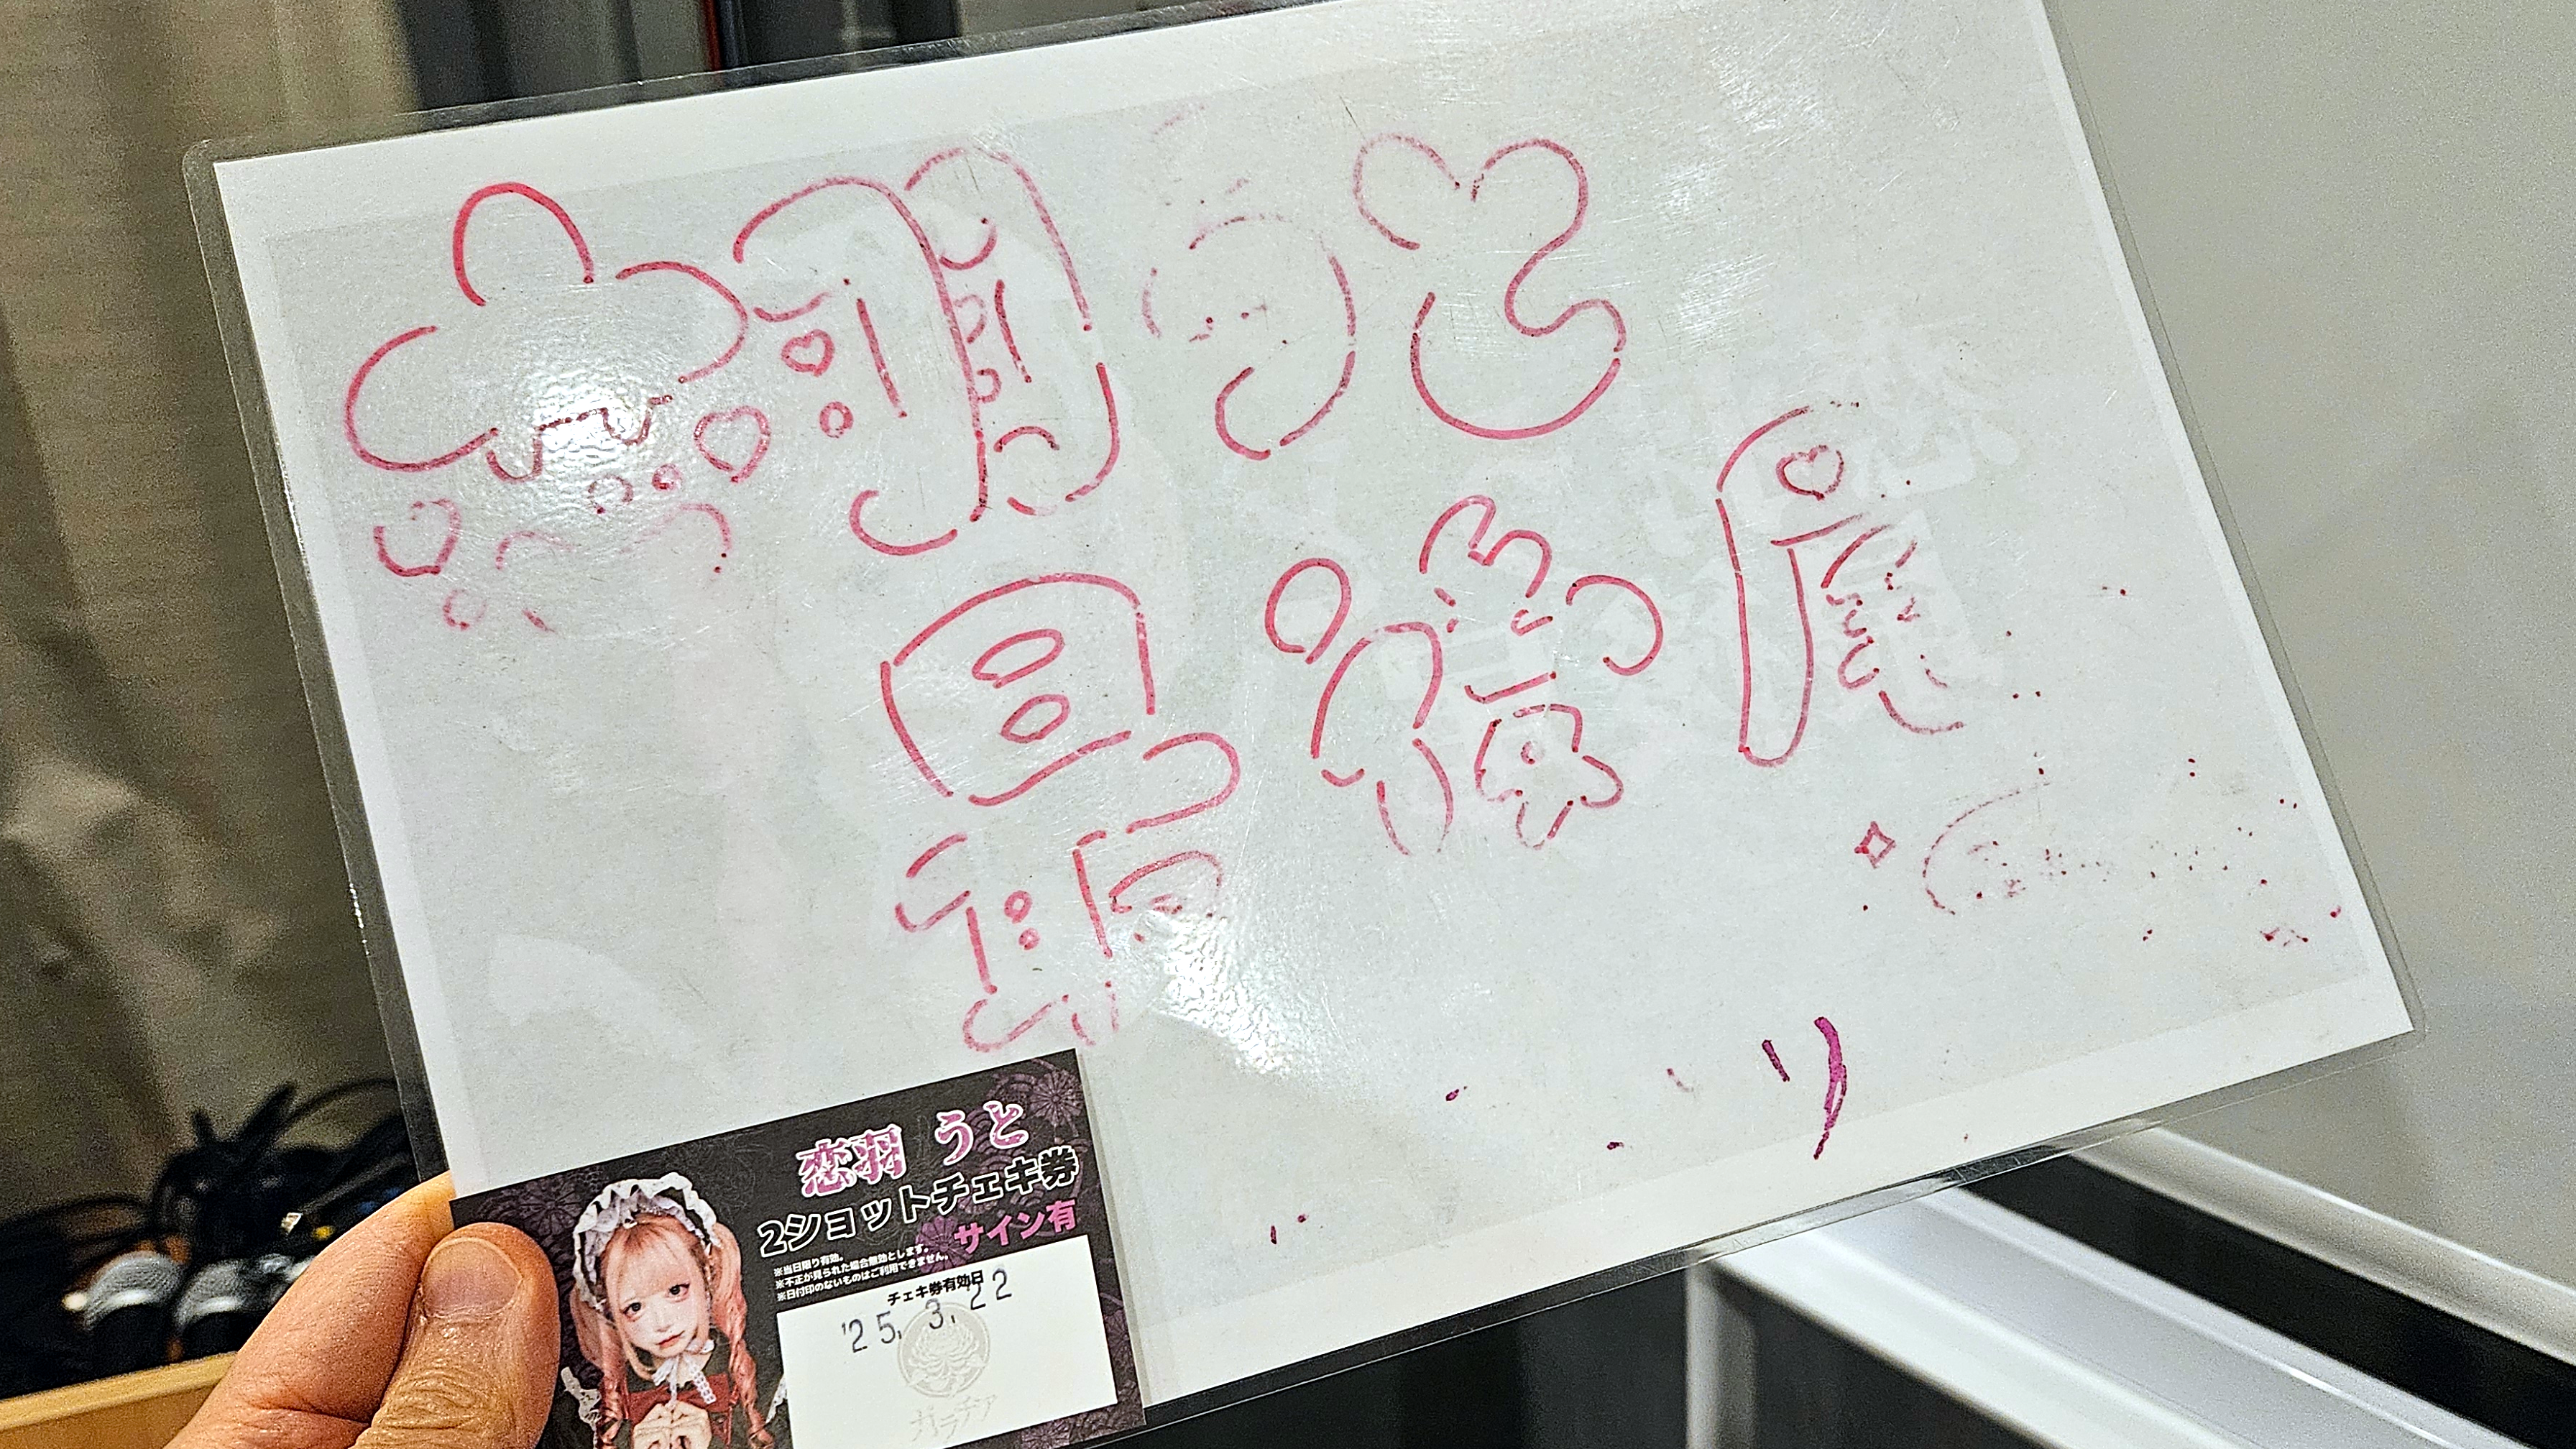 恋羽うと
最後尾
恋羽 うと
2ショットチェキ券
サイン有
※当日限り有効。
※不正が見られた場合無効とします。
※日付印のないものはご利用できません。
チェキ券有効日
'25. 3. 22
ガラチア